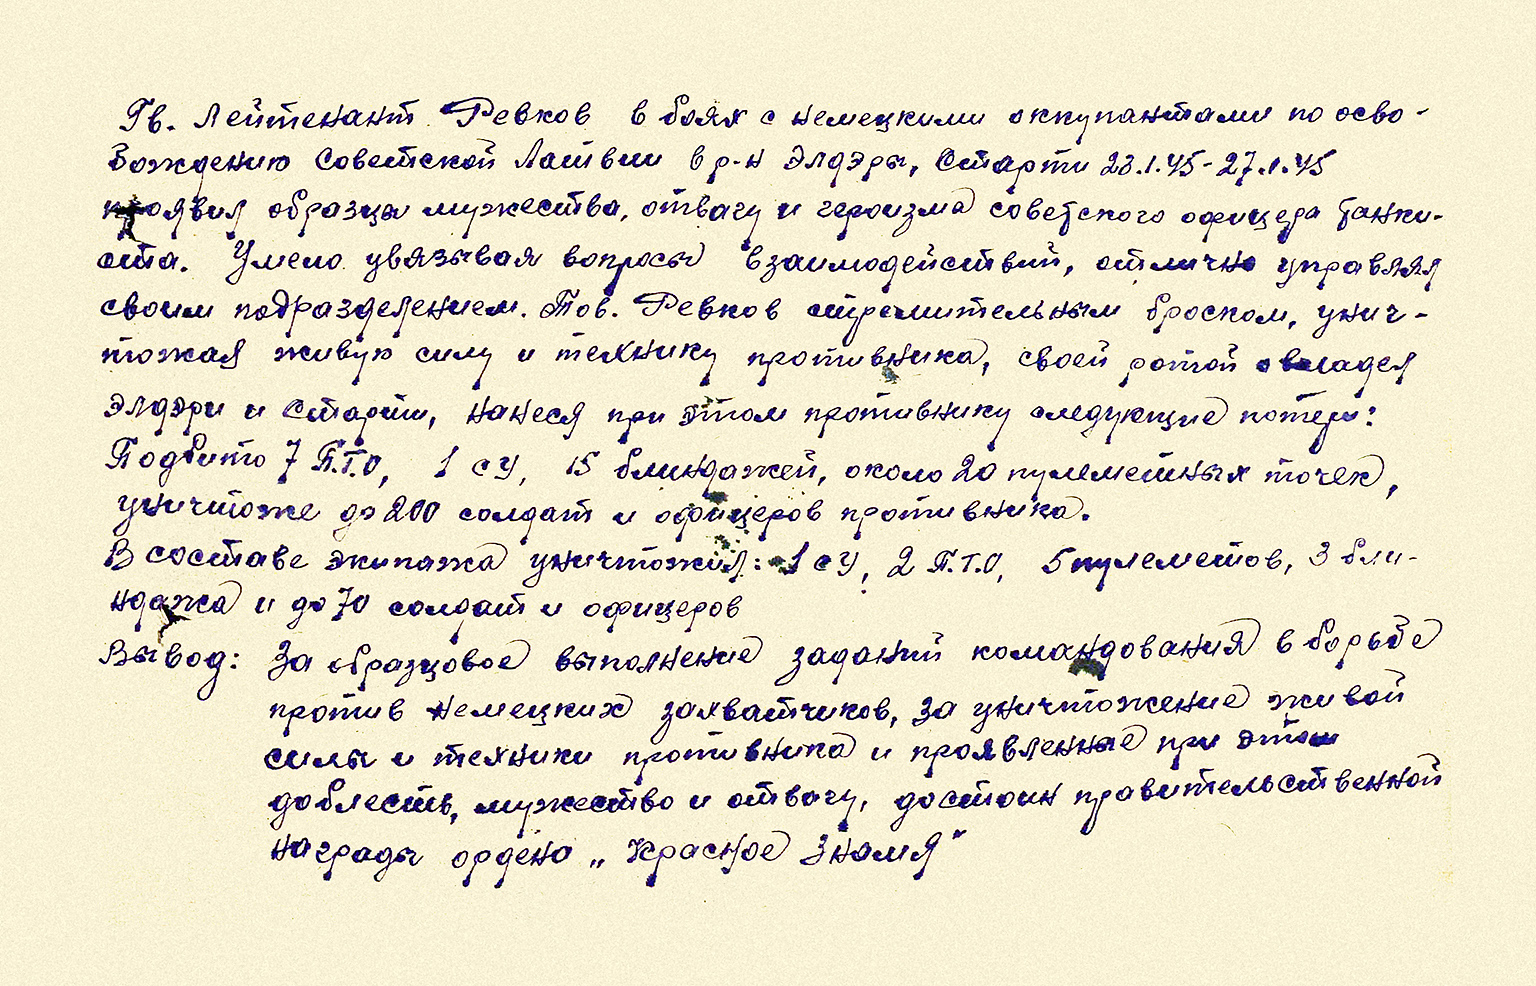 Гв. Лейтенант Ревков в боях с немецкими оккупантами по осво-
вождению Советской Латвии в р-н Элдэры, Старти 23.1.45-27.1.45
проявил образцы мужества, отвагу и героизма советского офицера танки-
ста. Умело увязывая вопросы взаимодействий, отлично управляя
своим подразделением. Тов. Ревков стремительным броском, унич-
тожая живую силу и технику противника, своей ротой овладел
Элдэри и Старти, нанеся при этом противнику следующие потери:
Подбито 7 П.Т.О, 1 СУ, 15 блиндажей, около 20 пулеметных точек,
уничтоже до 200 солдат и офицеров противника.
В составе экипажа уничтожил: 1 СУ, 2 П.Т.О, 5 пулеметов, 3 бли-
ндажа и до 70 солдат и офицеров
Вывод: За образцовое выполнение заданий командования в борьбе
против немецких захватчиков, за уничтожение живой
силы и техники противника и проявленные при этом
доблесть, мужество и отвагу, достоин правительственной
награды ордена „Красное Знамя"